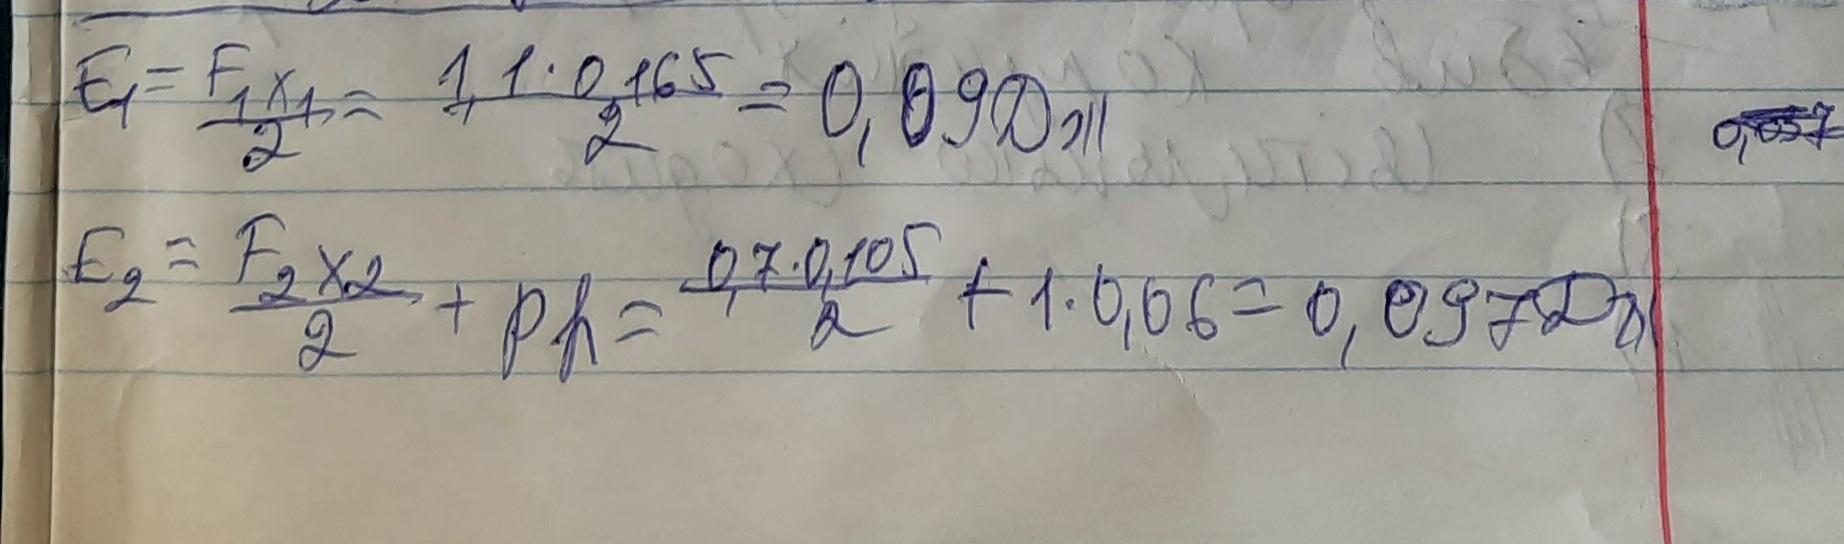 E₁ = F₁x₁/2 = 1,1·0,165/2 = 0,09Дж
E₂ = F₂x₂/2 + Ph = 0,7·0,105/2 + 1·0,06 = 0,097Дж